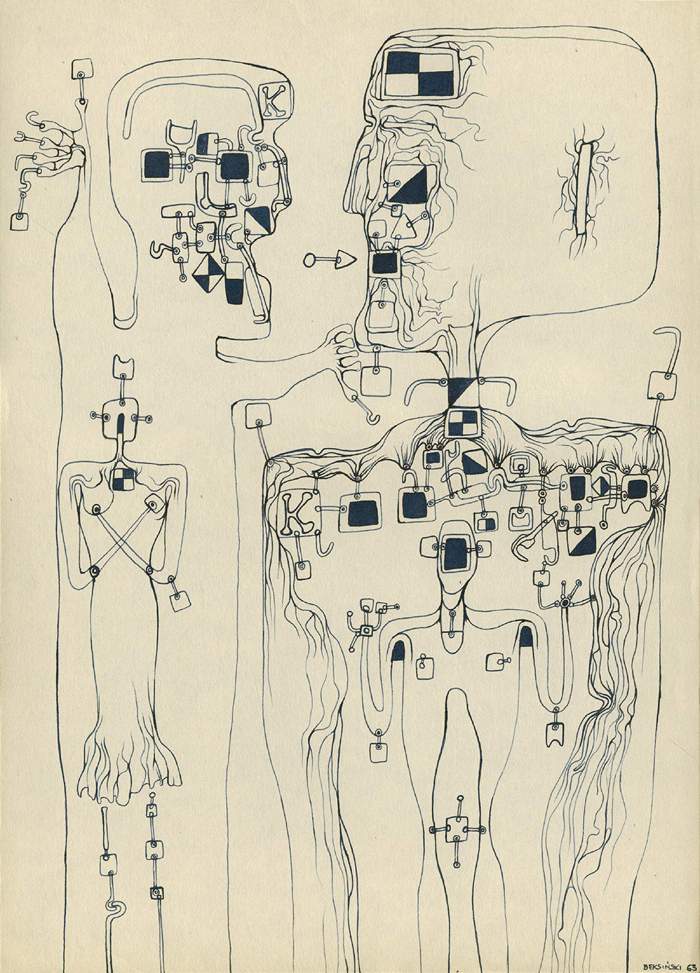 K
K
BEKSIŃSKI 63